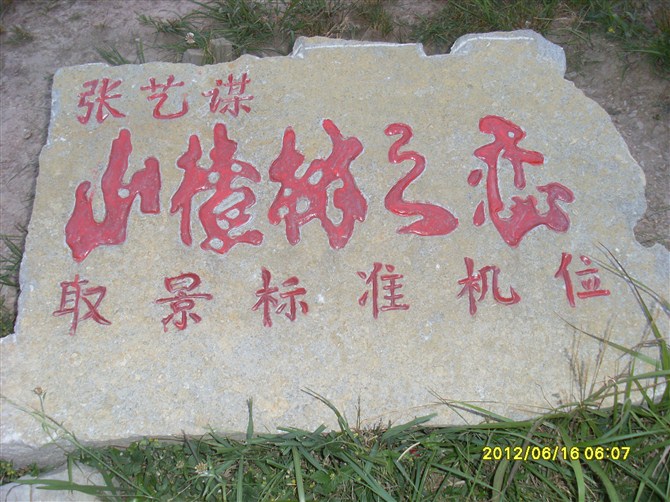 张艺谋
山楂树之恋
取景标准机位
2012/06/16 06:07